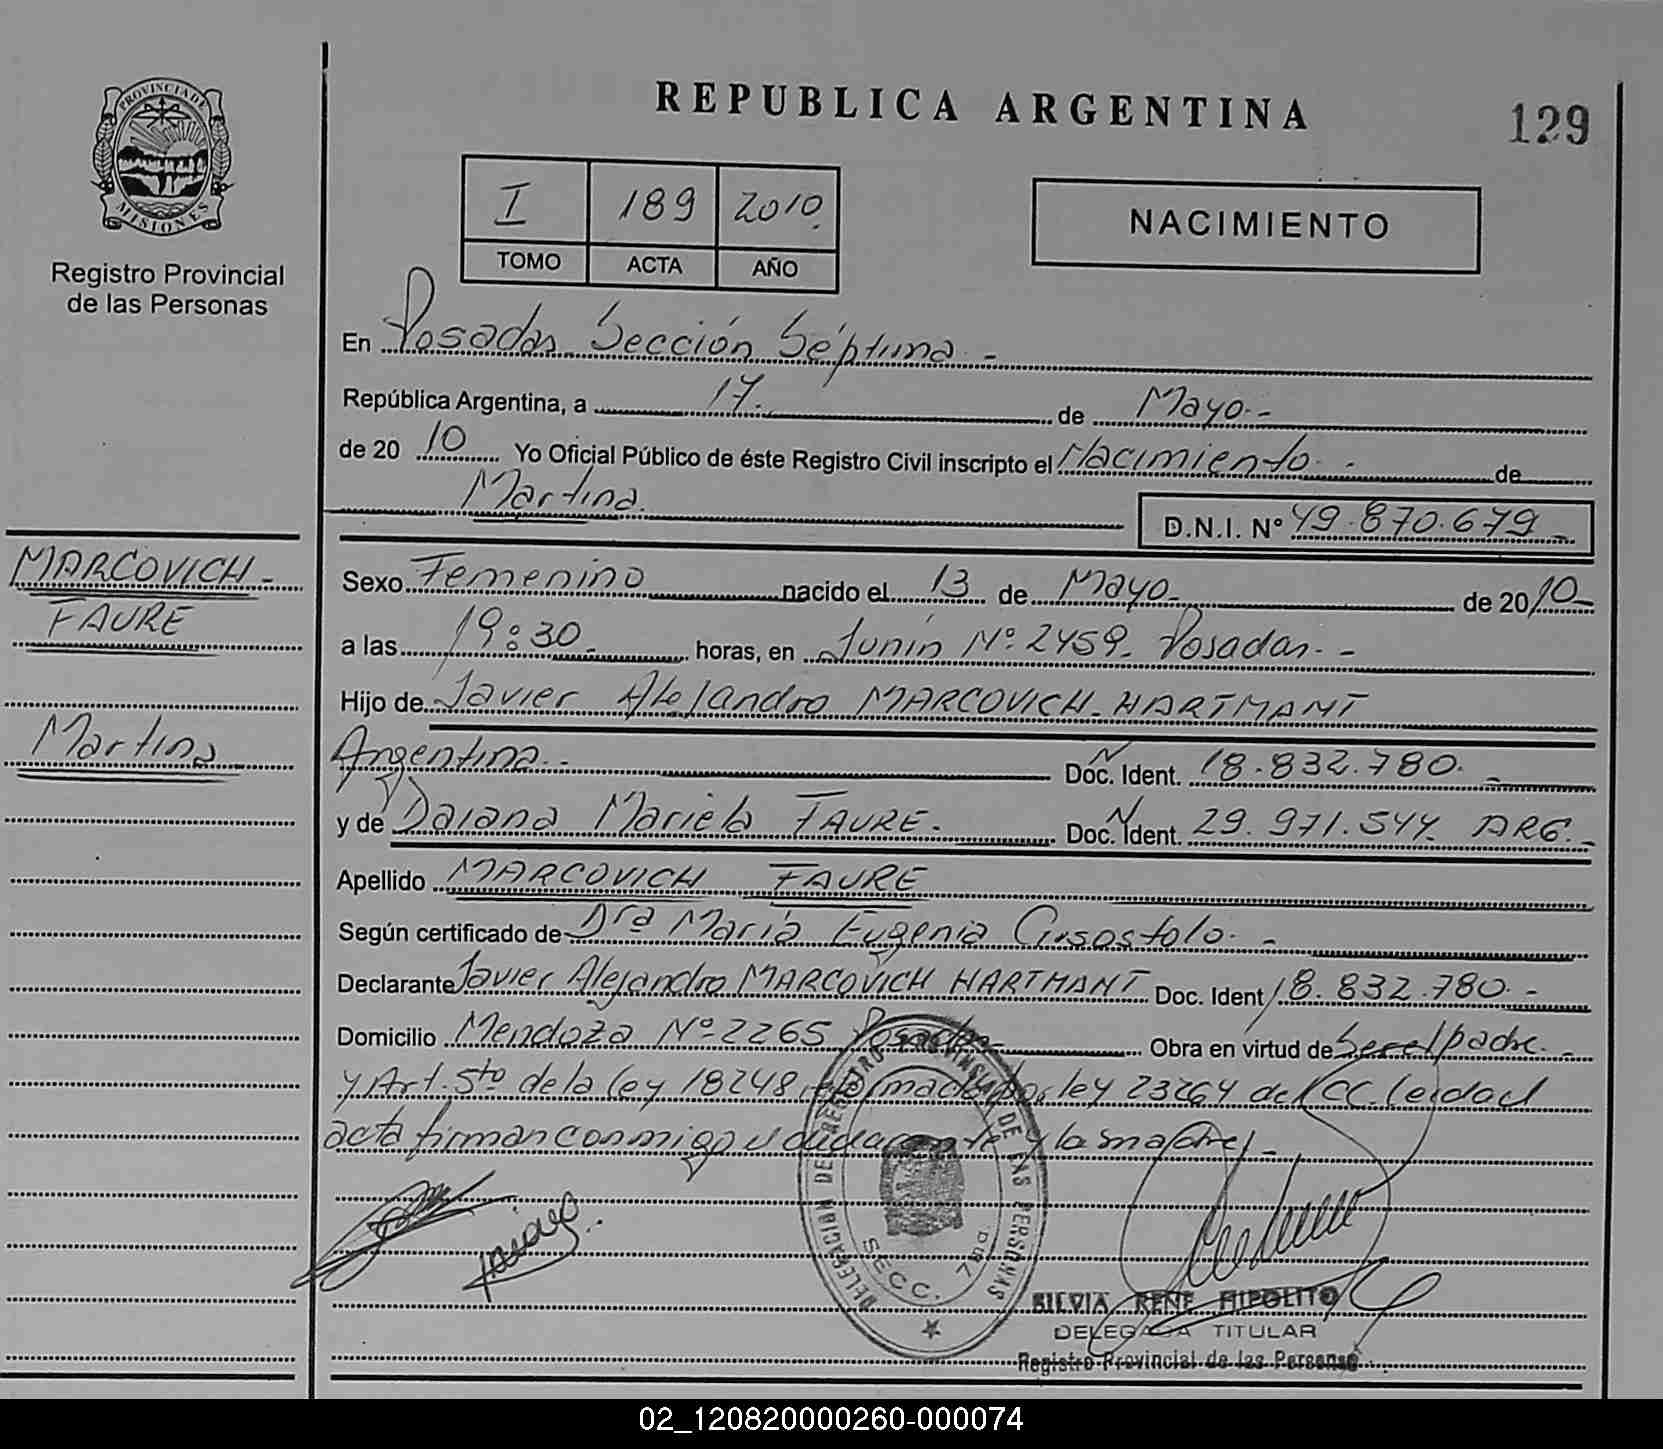 PROVINCIA DE
MISIONES
Registro Provincial
de las Personas
REPUBLICA ARGENTINA
129
I 189 2010
TOMO ACTA AÑO
NACIMIENTO
En Posadas Sección Séptima -
República Argentina, a 17. de Mayo.-
de 20 10 Yo Oficial Público de éste Registro Civil inscripto el Nacimiento.- de
Martina.
D.N.I. N° 49.870.679 -
MARCOVICH -
FAURE
Martina
Sexo Femenino nacido el 13 de Mayo - de 20 10 -
a las 19:30 - horas, en Junín N° 2459 - Posadas.-
Hijo de Javier Alejandro MARCOVICH - HARTMANT
Argentina.- Doc. Ident. N 18.832.780. -
y de Daiana Mariela FAURE. Doc. Ident. N 29.971.544. ARG. -
Apellido MARCOVICH FAURE
Según certificado de Dra María Eugenia Crisostolo. -
Declarante Javier Alejandro MARCOVICH HARTMANT Doc. Ident 18.832.780. -
Domicilio Mendoza N° 2265 Posadas Obra en virtud de Ser el padre. -
y Art. 5to de la ley 18248, reformado por ley 23264 del CC. Leída el
acta firman conmigo el declarante y la madre -
DELEGACION DE REGISTRO PROVINCIAL DE LAS PERSONAS
SECC. 7
SILVIA RENE HIPOLITO
DELEGADA TITULAR
Registro Provincial de las Personas
02_120820000260-000074